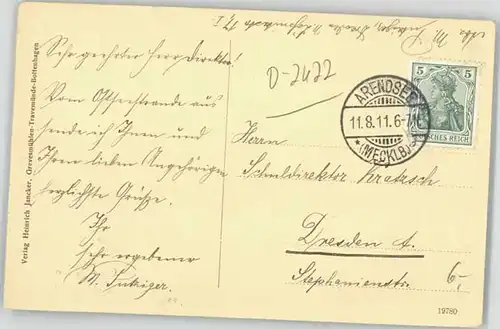 Sehr geehrter Herr Direktor!
Vom Ostseestrande aus
sende ich Ihnen und
Ihren lieben Angehörigen
herzlichste Grüsse.
Ihr
sehr ergebener
D-2422
ARENDSEE
11.8.11.6-7N.
* (MECKLB)
5 5
DEUTSCHES REICH
Herrn
Schuldirektor Kratzsch
Dresden A.
Stephanienstr.
6,-
19780
Verlag Heinrich Jancker, Grevesmühlen-Travemünde-Boltenhagen